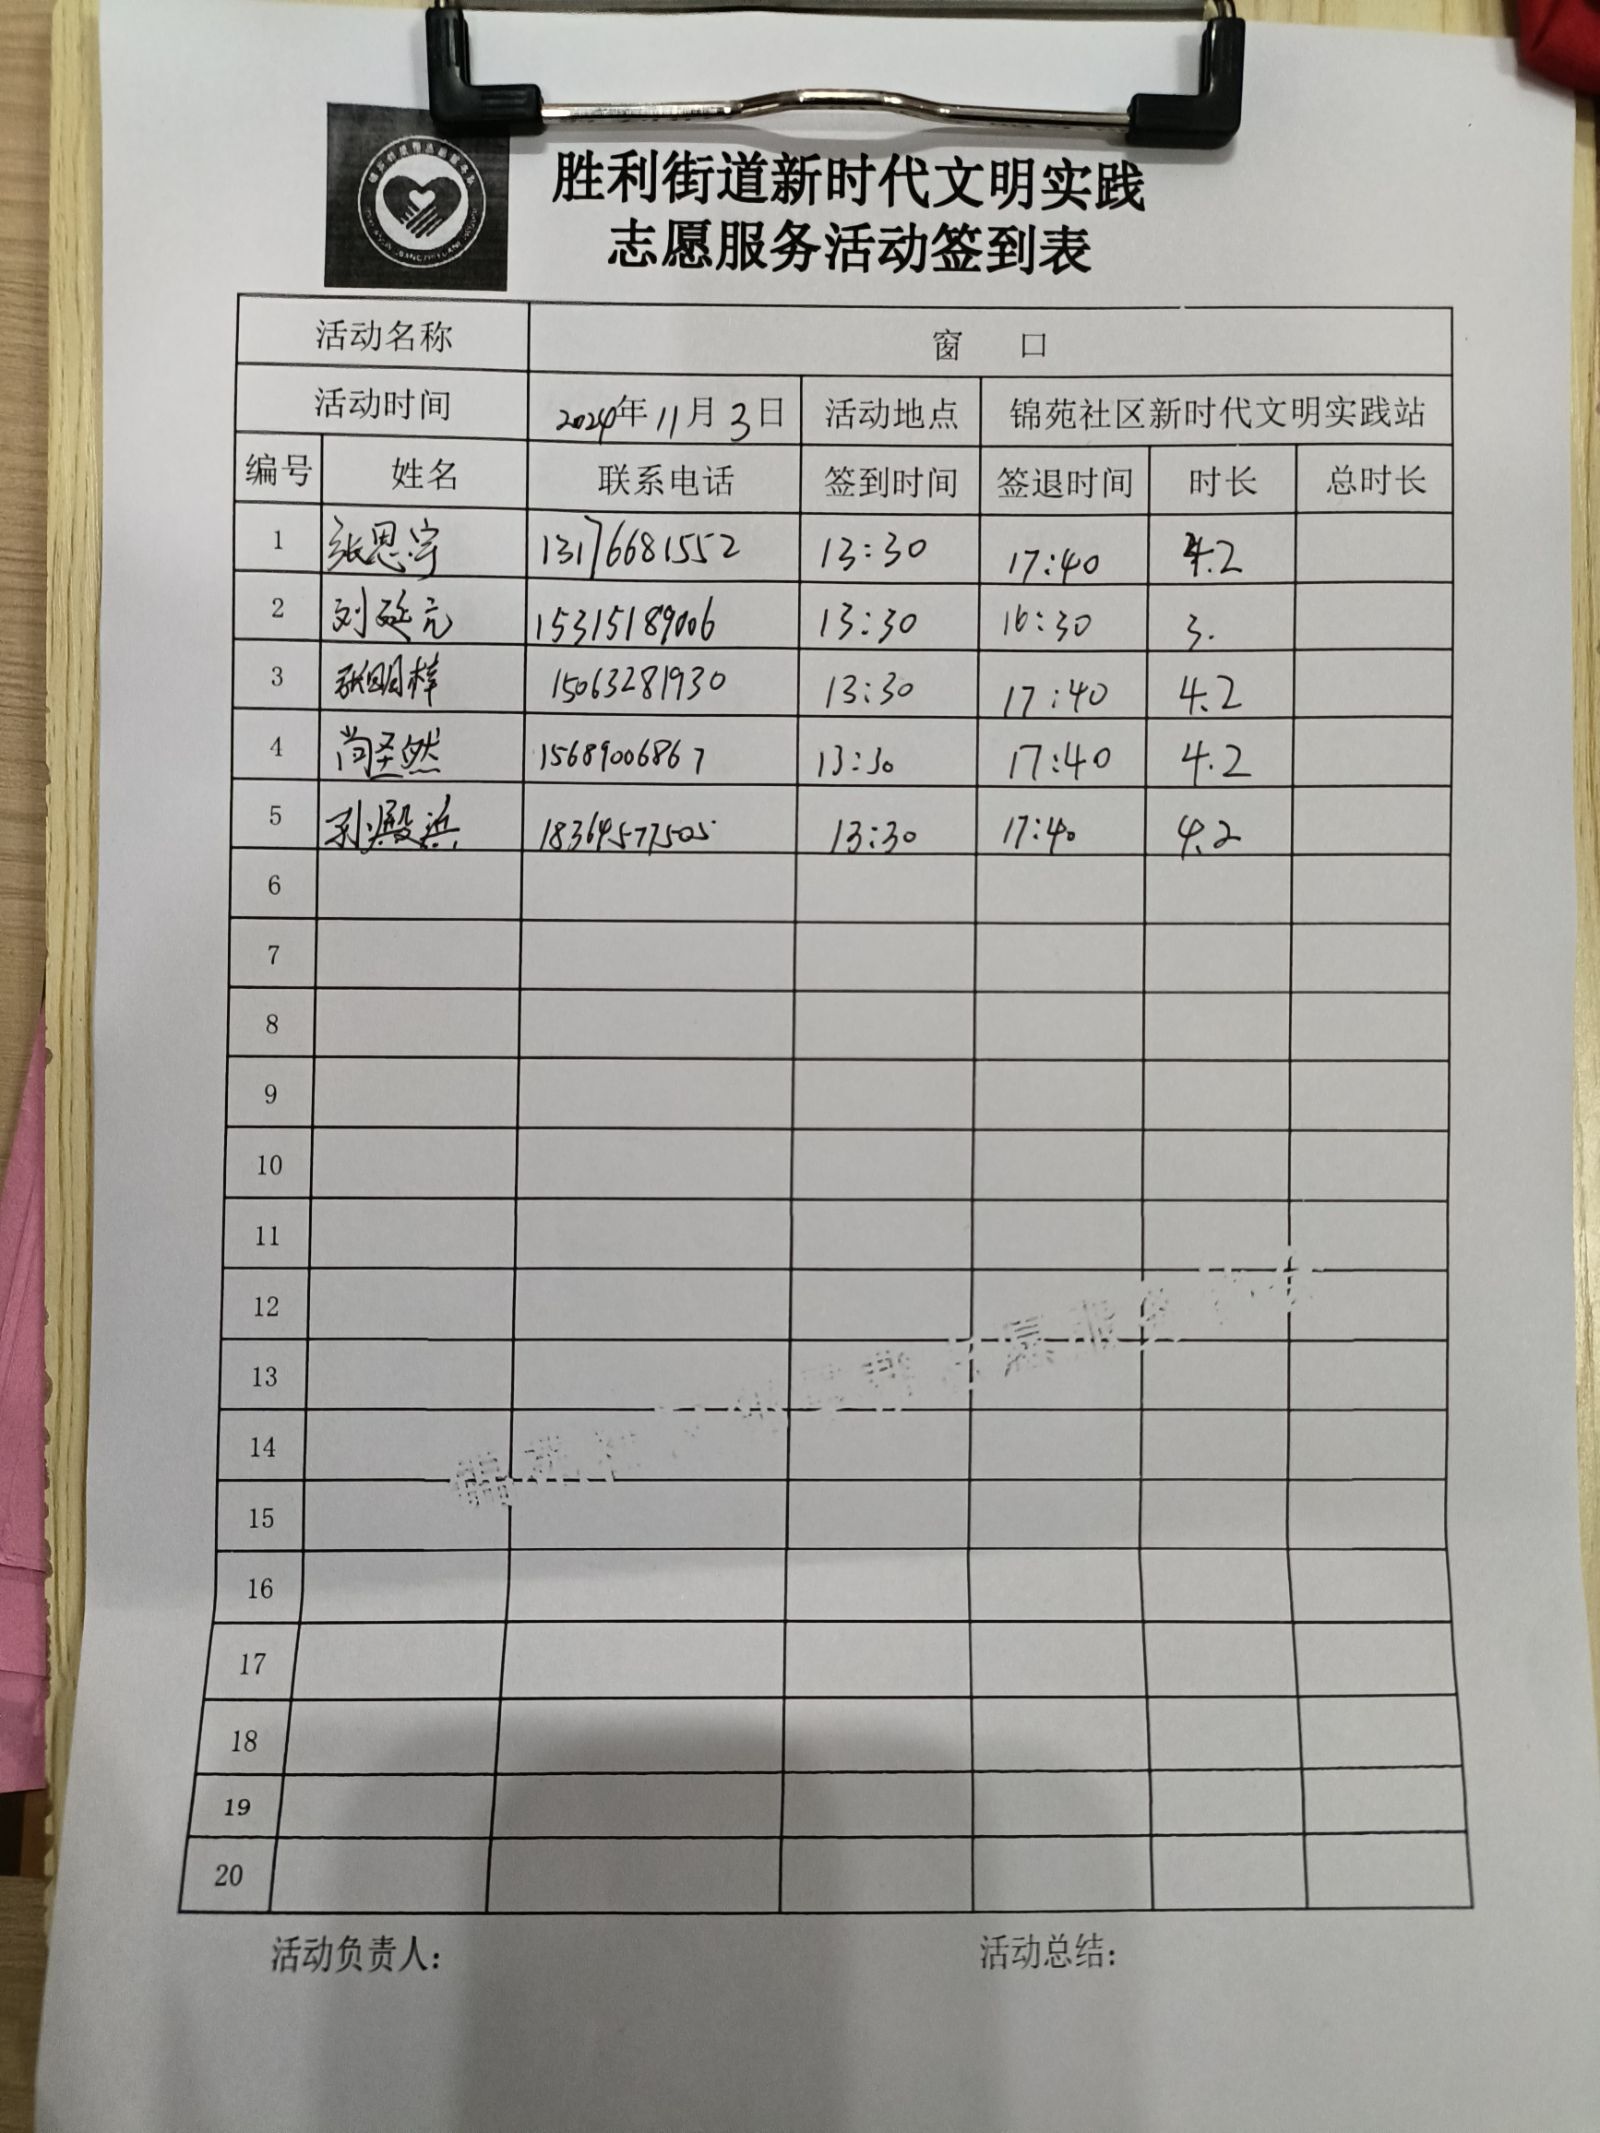 胜利街道新时代文明实践
志愿服务活动签到表
活动名称 窗 口
活动时间 2024年11月3日 活动地点 锦苑社区新时代文明实践站
编号 姓名 联系电话 签到时间 签退时间 时长 总时长
1 张思宇 13176681552 13:30 17:40 4.2
2 刘延元 15315189006 13:30 16:30 3.
3 张明梓 15063281930 13:30 17:40 4.2
4 尚圣然 15689006867 13:30 17:40 4.2
5 刘殿浜 18364577505 13:30 17:40 4.2
6
7
8
9
10
11
12
13
14
15
16
17
18
19
20
活动负责人： 活动总结：